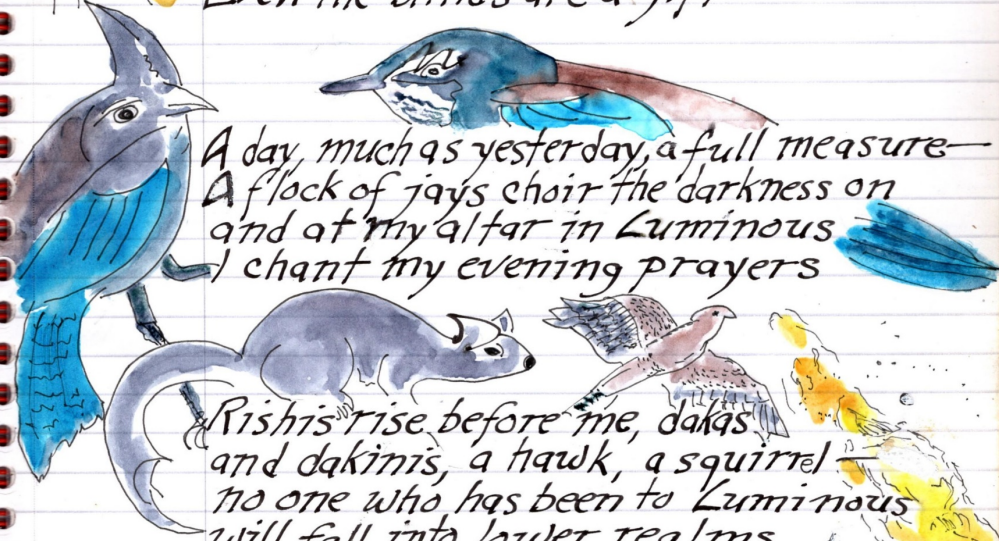 Even the ... are a gift
A day, much as yesterday, a full measure—
A flock of jays choir the darkness on
and at my altar in Luminous
I chant my evening prayers
Rishis rise before me, dakas
and dakinis, a hawk, a squirrel—
no one who has been to Luminous
will fall into lower realms